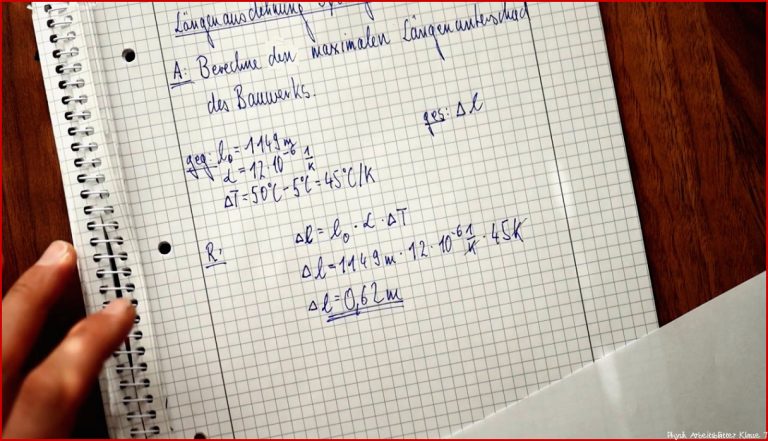 Längenausdehnung
A: Berechne den maximalen Längenunterschied
des Bauwerks.
geg: l₀ = 1149 m
ges: Δl
α = 12 · 10⁻⁶ 1/K
ΔT = 50°C - 5°C = 45°C/K
R: Δl = l₀ · α · ΔT
Δl = 1149 m · 12 · 10⁻⁶ 1/K · 45K
Δl = 0,62 m
Physik Arbeitsblätter Klasse 7